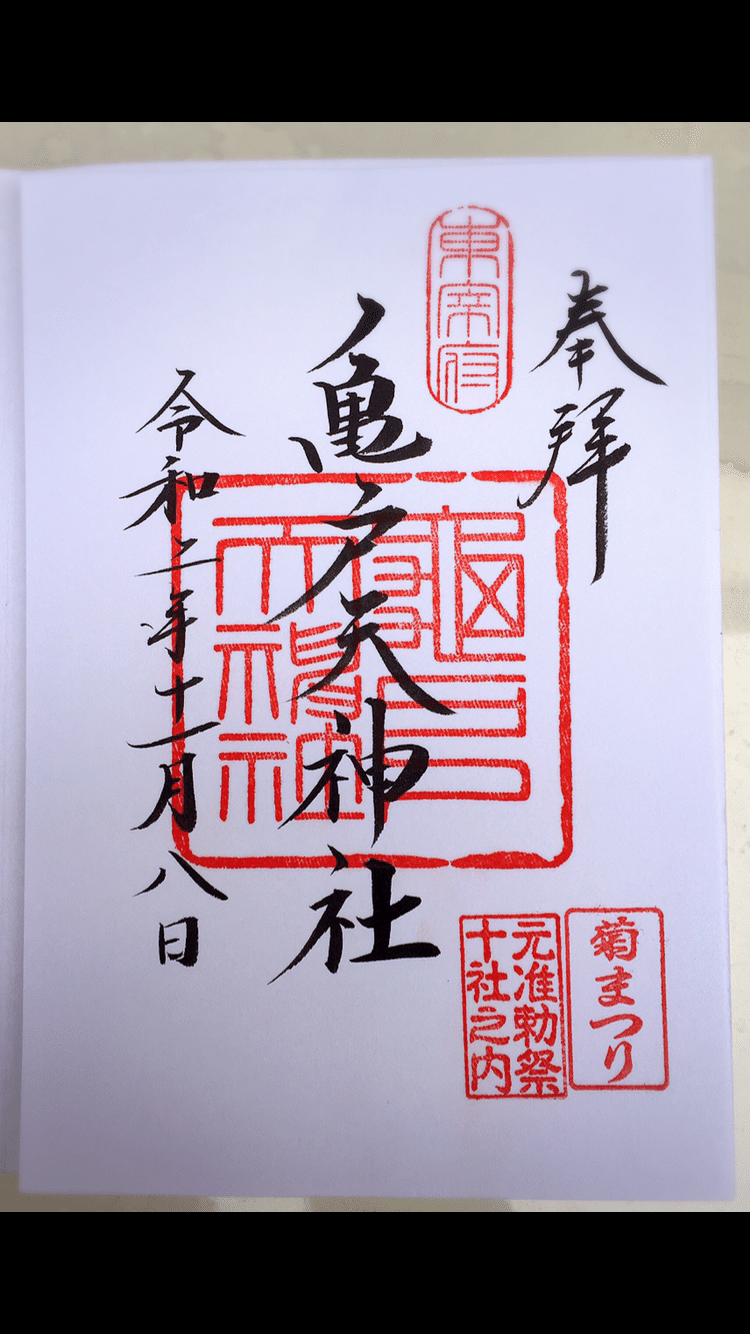 奉拝
東宰府
亀戸天神社
令和二年十一月八日
菊まつり
元准勅祭
十社之内